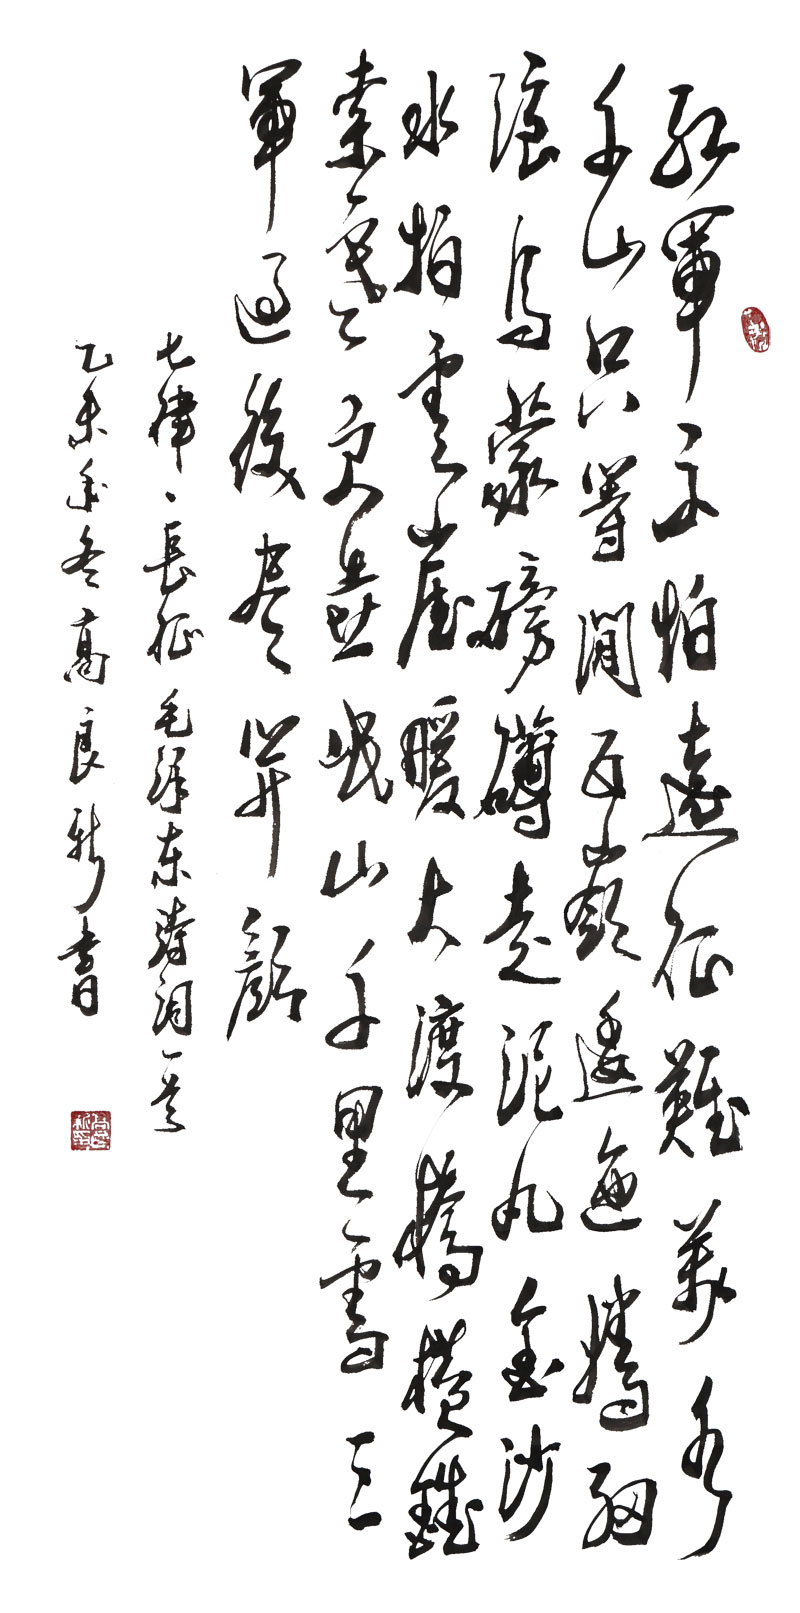 紅軍不怕遠征難萬水
千山只等閒五嶺逶迤騰細
浪烏蒙磅礴走泥丸金沙
水拍雲崖暖大渡橋橫鐵
索寒更喜岷山千里雪三
軍過後盡開顏
七律、長征 毛澤東詩詞一首
乙未年冬高良新書